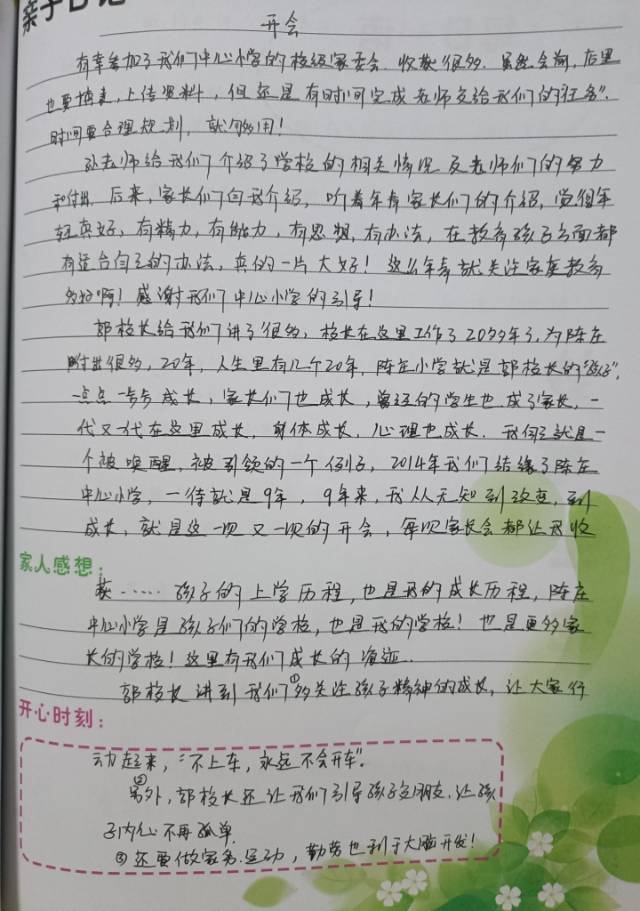 亲子日记
开会
有幸参加了我们中心小学的校级家委会.收获很多.虽然会前,后里
也要填表,上传资料,但还是有时间完成老师交给我们的任务".
时间要合理规划,就够用!
孙老师给我们介绍了学校的相关情况及老师们的努力
和付出.后来,家长们自我介绍,听着年青家长们的介绍,觉得年
轻真好,有精力,有能力,有思想,有办法,在教育孩子方面都
有适合自己的办法,真的一片大好!这么年青就关注家庭教育
多好啊!感谢我们中心小学的引导!
郭校长给我们讲了很多,校长在这里工作了20多年了,为陈庄
付出很多,20年,人生里有几个20年,陈庄小学就是郭校长的"孩子",
一点点一步步成长,家长们也成长,曾经的学生也成了家长,一
代又一代在这里成长,身体成长,心理也成长.我何尝就是一
个被唤醒,被引领的一个例子,2014年我们结缘了陈庄
中心小学,一待就是9年,9年来,我从无知到改变,到
成长,就是这一次又一次的开会,每次家长会都让我收
家人感想:
获……孩子的上学历程,也是我的成长历程,陈庄
中心小学是孩子们的学校,也是我的学校!也是更多家
长的学校!这里有我们成长的痕迹.
郭校长讲到我们①多关注孩子精神的成长,让大家行
开心时刻:
动起来,"不上车,永远不会开车".
②另外,郭校长还让我们引导孩子交朋友.让孩
子内心不再孤单.
③还要做家务.运动,勤劳也利于大脑开发!